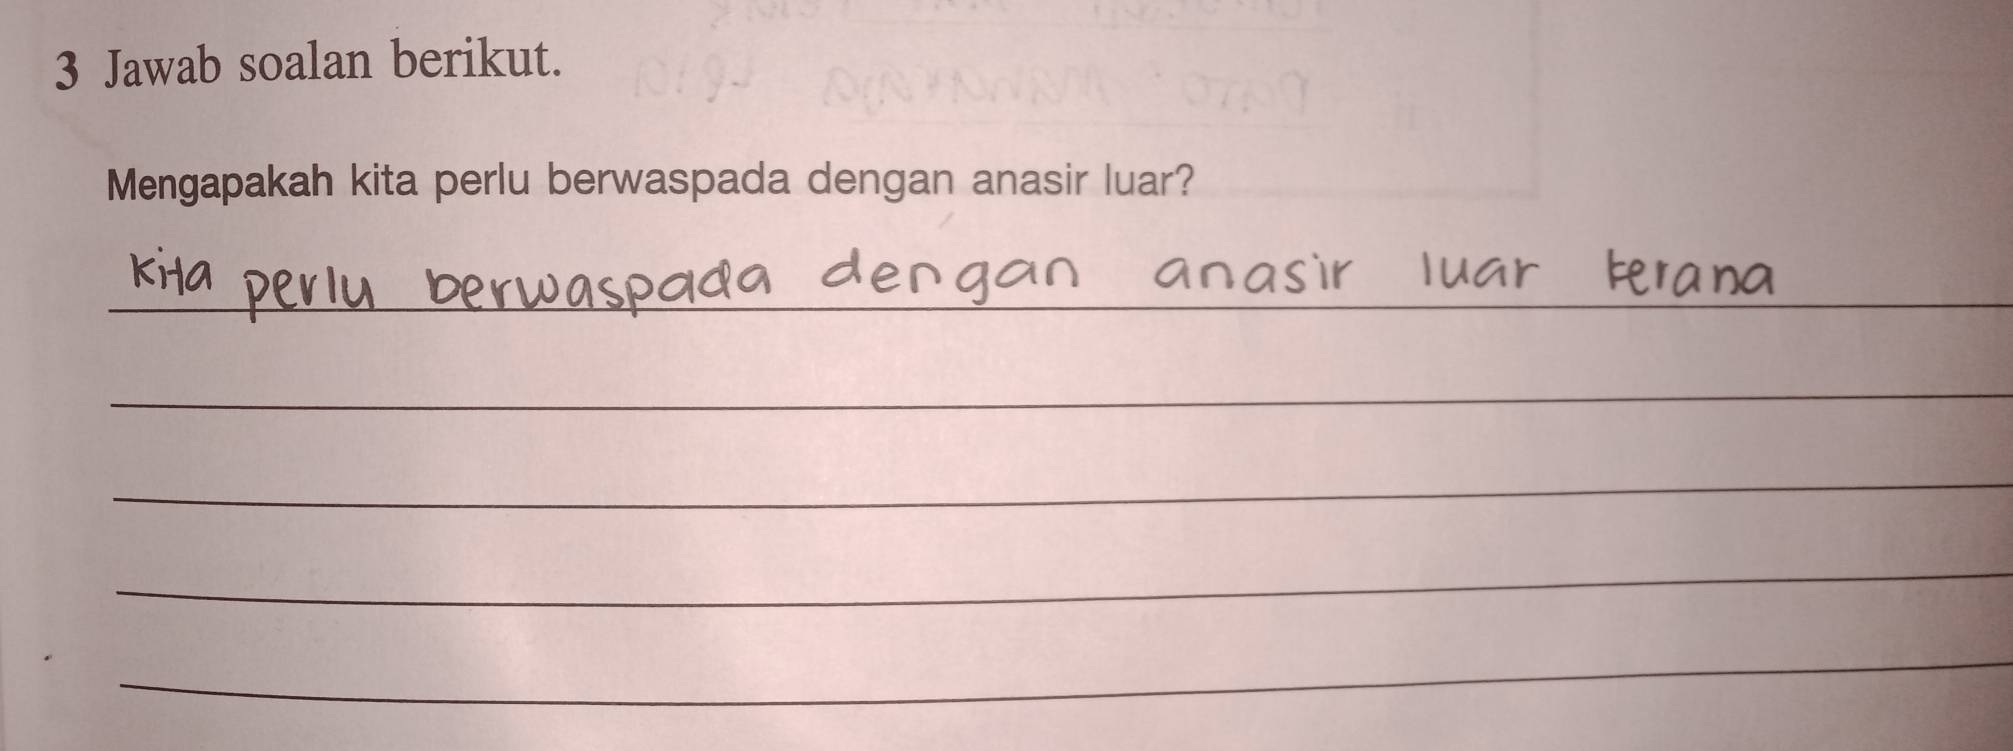 3 Jawab soalan berikut.
Mengapakah kita perlu berwaspada dengan anasir luar?
kita perlu berwaspada dengan anasir luar kerana